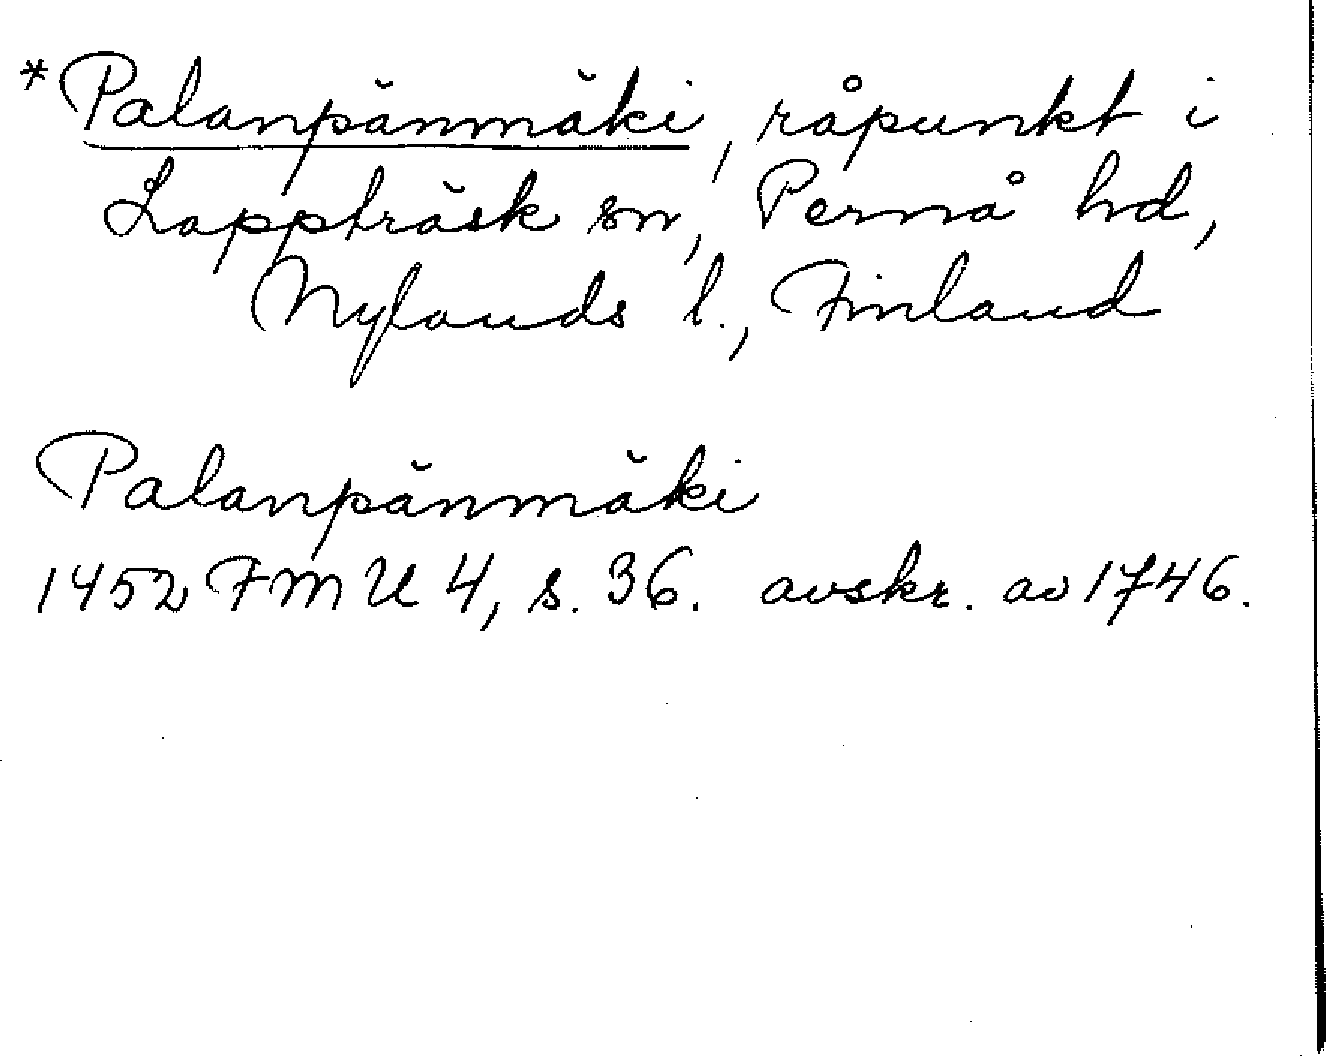 *Palanpänmäki, råpunkt i
Lappträsk sn, Pernå hd,
Nylands l., Finland
Palanpänmäki
1452 FMU 4, s. 36. avskr. av 1746.